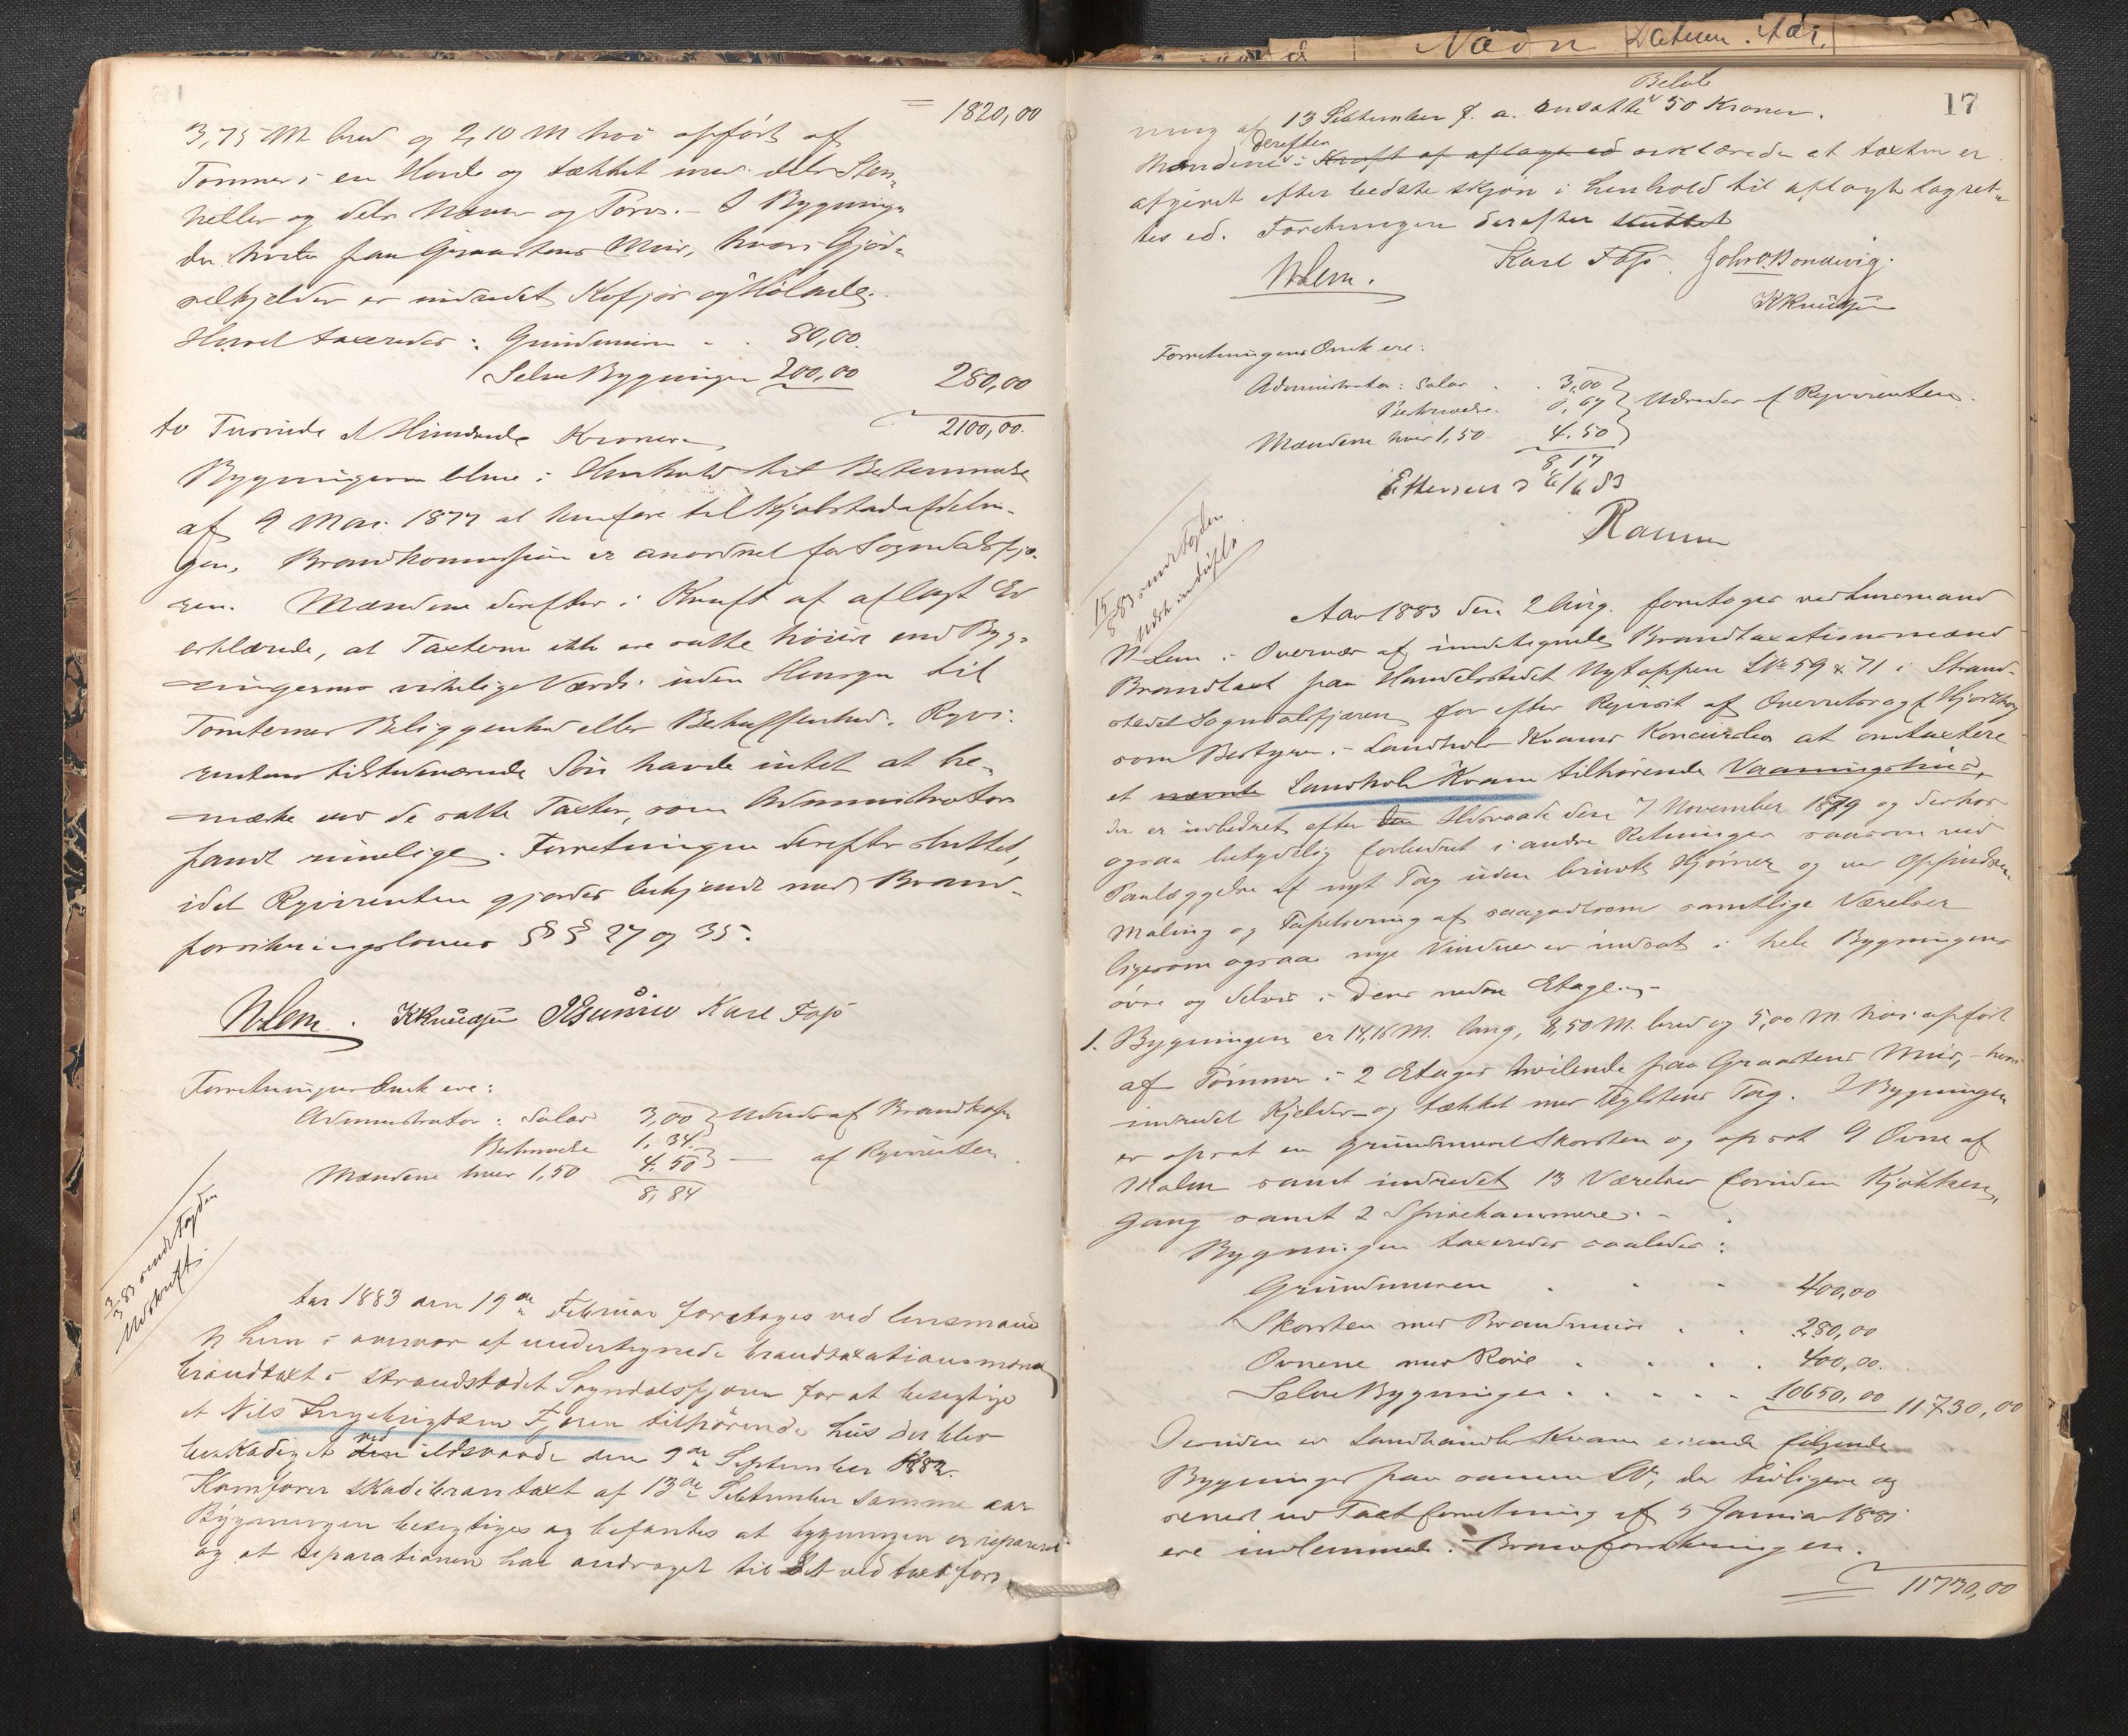 = 1820,00
3,75 M bred og 2,10 M høi opført af
Tømmer i en Høide og tækket med dels Sten-
heller og dels Næver og Torv. – I Bygningen
der hviler paa Graastens Muur, hvori Gjød-
selkjelder er indredet Kofjøs og Hølade.
Herved taxeredes: Grundmuren - . 80,00.
Selve Bygningen 200,00 280,00
to Tusinde et Hundrede Kroner. 2100,00.
Bygningerne blive i Henhold til Bestemmelse
af 9 Mai 1877 at henføre til Kjøbstadafdelin-
gen, Brandkommission er anordnet for Sogndalsfjæ-
ren. Mændene derefter i Kraft af aflagt Ed
erklærede, at Taxterne ikke ere satte høiere end Byg-
ningernes virkelige Værdi uden Hensyn til
Tomternes Beliggenhed eller Beskaffenhed. Rqvi-
rentens tilstedeværende Søn havde intet at be-
mærke ved de satte Taxter, som Administrator
fandt rimelige. Forretningen derefter sluttet,
idet Rqvirenten gjordes bekjendt med Brand-
forsikringslovens §§ 27 og 35.
N Lem. K Knudsen Karl Foss
Forretningens Omk ere:
Administrator: Salær 3,00 Udredes af Brandkassen
Beskrivelse 1,34
Mændene hver 1,50 4.50 — af Rqvirenten
8,84
3/3 83 sendt Fogden
Udskrift.
Aar 1883 den 19de Februar foretoges ved lensmand
N Lem i overvær af undertegnede brandtaxationsmænd
brandtaxt i Strandstedet Sogndalsfjæren for at besigtige
et Nils Ingebrigtsen Fjæren tilhørende huus der blev
beskadiget den ved ildsvaade den 9de September 1882.
Jamfører skadebrantaxt af 13de September samme aar
Bygningen besigtiges og befantes at bygningen er repareret
og at reparationen har andraget til det ved taxtfor-
17
ning af 13 September f. a. ansatte Beløb 50 Kroner.
Mændene derefter i Kraft af aflagt ed erklærede at taxten er
afgivet efter bedste skjøn i henhold til aflagt lagret-
tes ed. Foretningen derefter sluttet
N Lem. Karl Foss. John O. Bondevig.
K Knudsen
Forretningens Omk ere:
Administrator: Salær . . 3,00
Beskrivelse. 0,67 Udredes af Rqvirenten.
Mændene hver 1,50. 4.50
8,17
Efterseet
Ramm
15/8 83 sendt Fogden
Udsk
Aar 1883 den 2 Aug. foretoges ved Lensmand
N Lem i Overvær af undertegnede Brandtaxationsmænd
Brandtaxt paa Handelsstedet Nytoppen LNo 59 & 71 i Strand-
stedet Sogndalsfjæren for efter Rqvisit af Overretssagf Hjorthøy
som Bestyrer i Landhdlr Kvams Konkursbo at omtaxtere
et nævnte Landhdl Kvam tilhørende Vaaningshuus,
der er indbedret efter den Ildsvaade den 7 November 1879 og derhos
ogsaa betydelig forbedret i andre Retninger saasom ved
Paalæggelse af nyt Tag uden brukte Hjørner og ved Oppudsen
Maling og Tapetsering af saagodtsom samtlige Værelser
ligesom ogsaa nye Vinduer er indsat i hele Bygningens
øvre og delvis i dens nedre Etage. –
1. Bygningen er 14,16 M. lang, 8,50 M. bred og 5,00 M høi opført
af Tømmer i 2 Etager hvilende paa Graastens Muur, – hvori
indredet Kjelder – og tækket med Teglstens Tag. I Bygningen
er opsat en grundmuret Skorsten og opsat 9 Ovne af
Malm samt indredet 13 Værelser foruden Kjøkken,
Gang samt 2 Spisekammere. –
Bygningen taxeredes saaledes:
Grundmuren . . . . 400,00
Skorsten med Brandmure . . 280,00
Ovnene med Røre . . . . 400,00.
Selve Bygningen . . . . . 10650,00 11730,00
Desuden er Landhandler Kvam eiende følgende
Bygninger paa samme LN, der tidligere og
senest ved Taxtforretning af 5 Januar 1881
ere indlemmede i Brandforsikringen.
11730,00
Navn Datum. Aar.